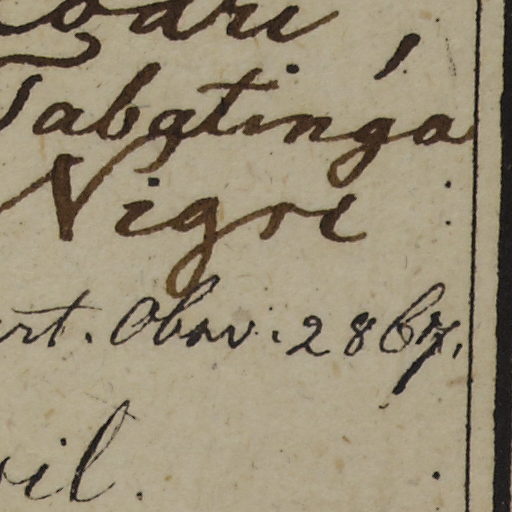 Codri,
Tabatinga
Nigri
ert. Obov. 2867.
vil.